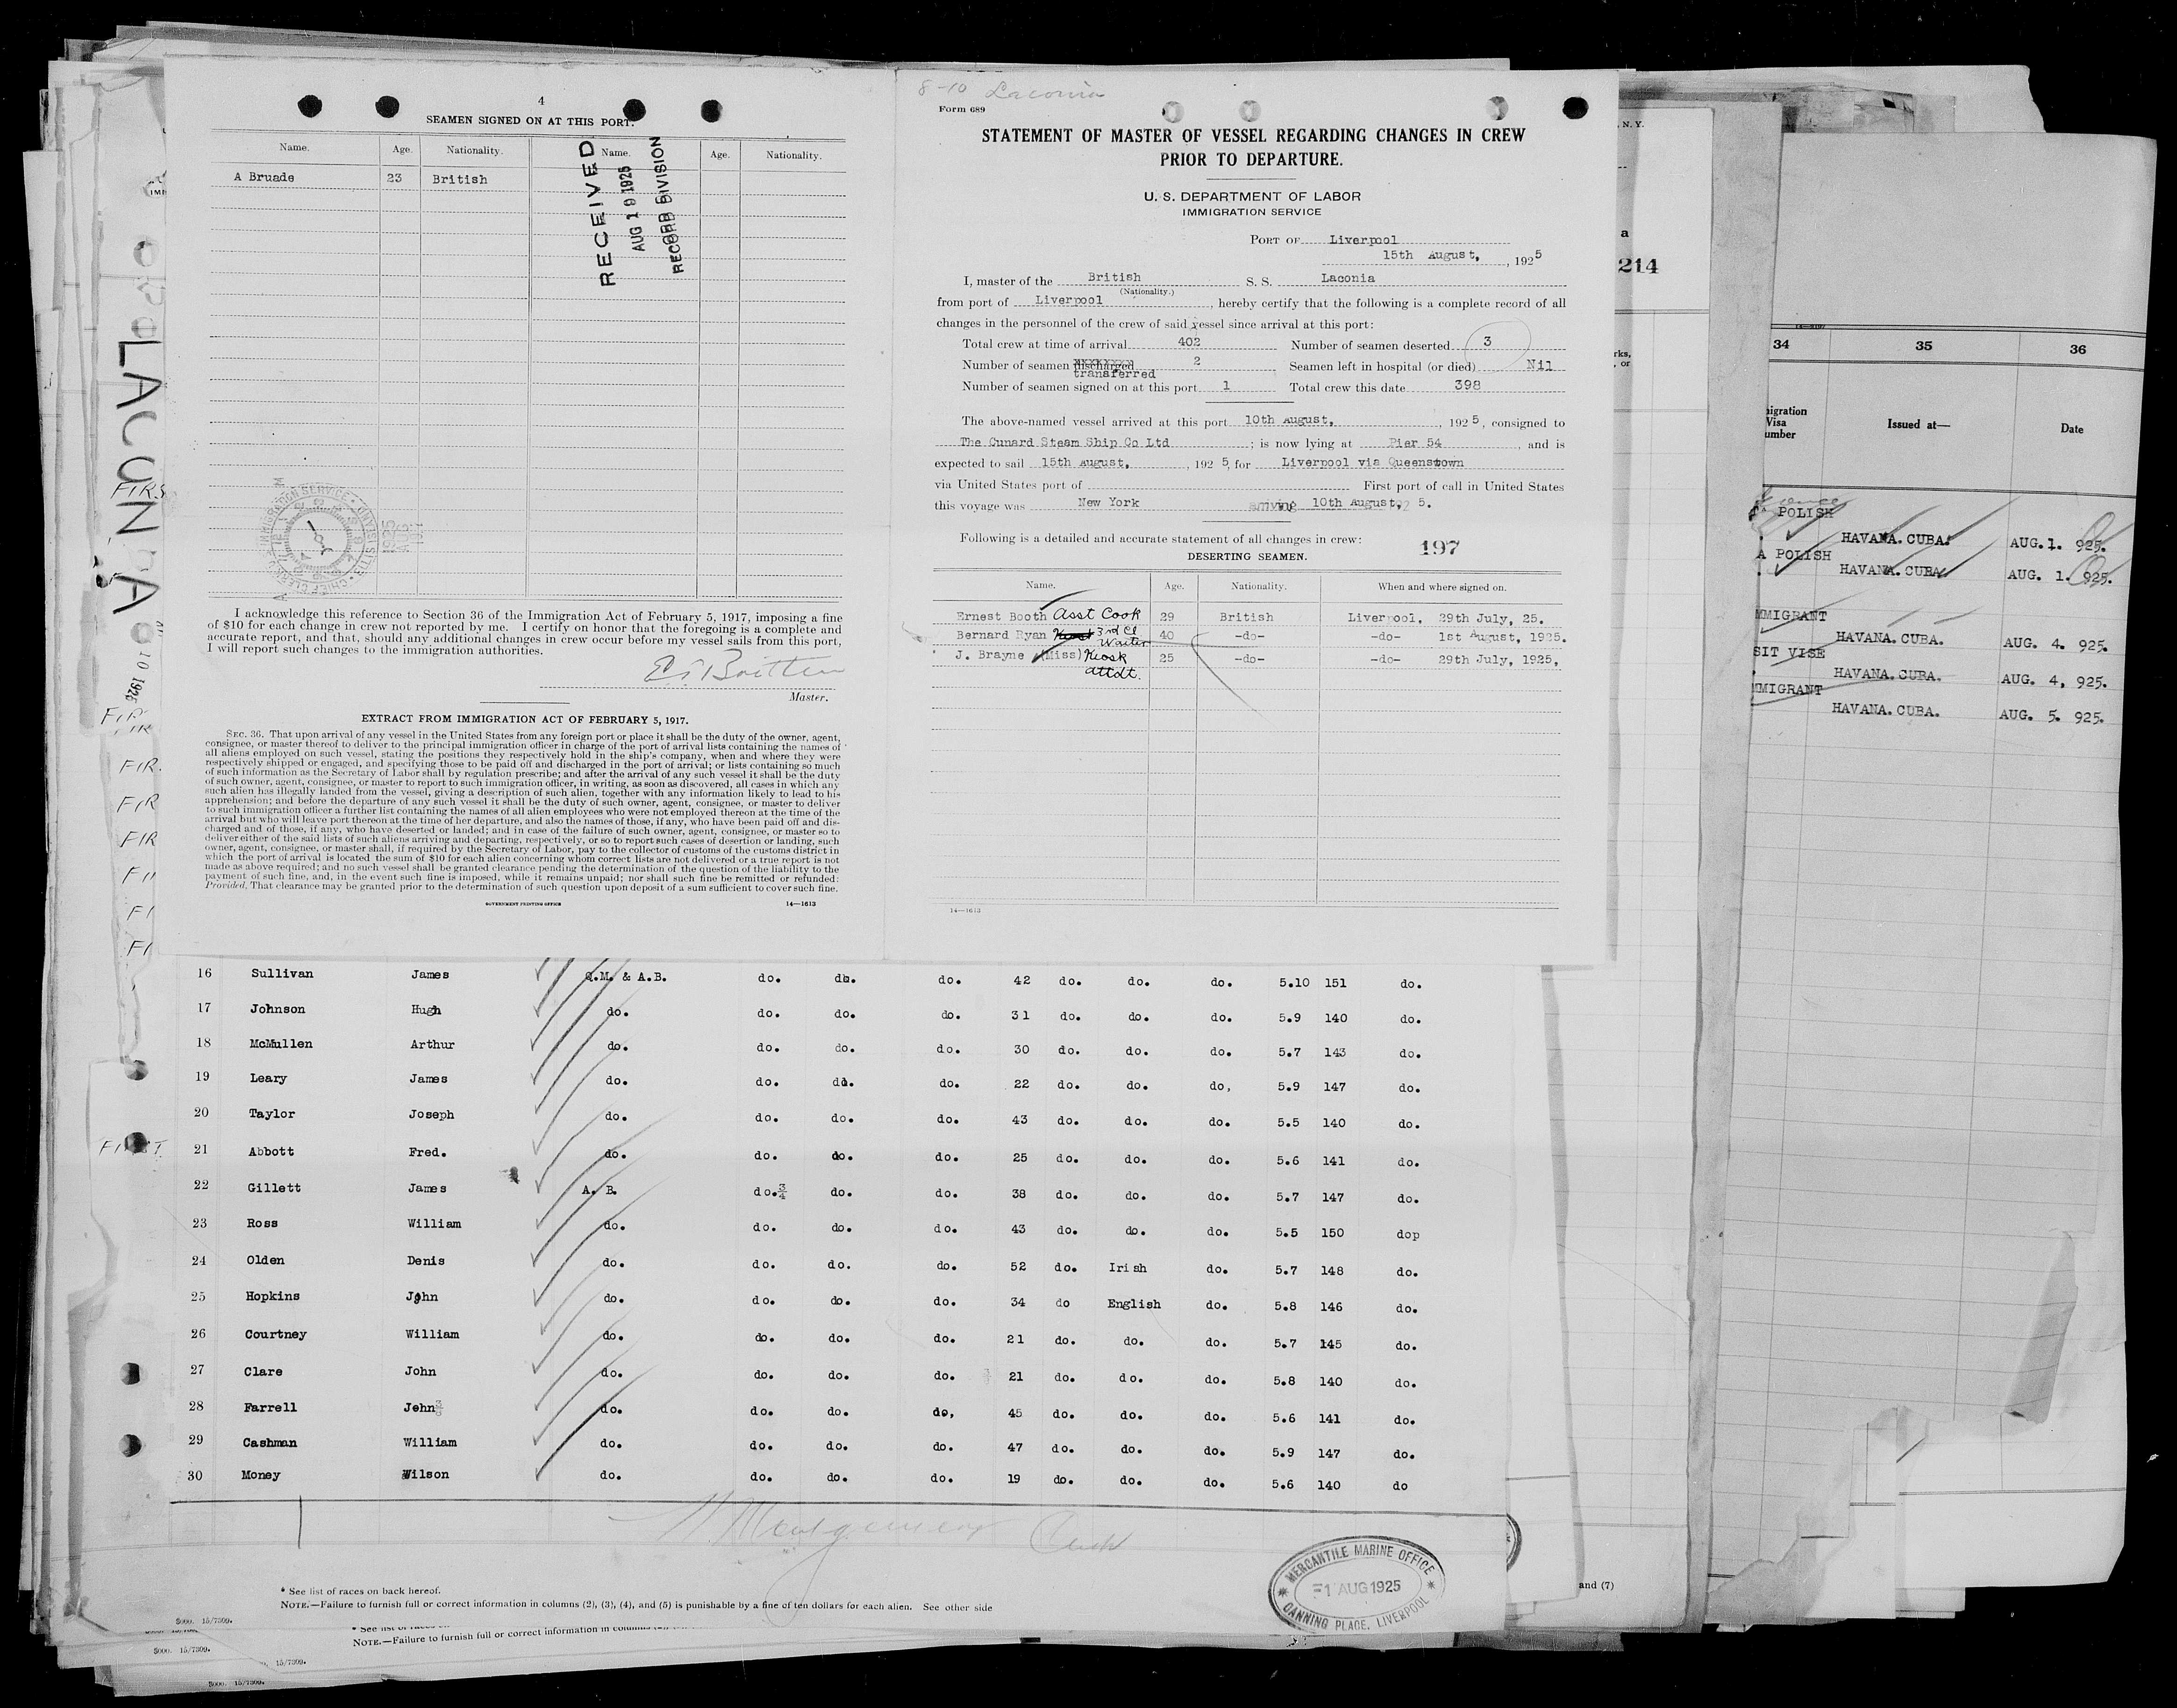 4
SEAMEN SIGNED ON AT THIS PORT.
Name. Age. Nationality. Name. Age. Nationality.
A Bruade 23 British
RECEIVED
AUG 19 1925
RECORD DIVISION
I acknowledge this reference to Section 36 of the Immigration Act of February 5, 1917, imposing a fine
of $10 for each change in crew not reported by me. I certify on honor that the foregoing is a complete and
accurate report, and that, should any additional changes in crew occur before my vessel sails from this port,
I will report such changes to the immigration authorities.
Master.
EXTRACT FROM IMMIGRATION ACT OF FEBRUARY 5, 1917.
SEC. 36. That upon arrival of any vessel in the United States from any foreign port or place it shall be the duty of the owner, agent,
consignee, or master thereof to deliver to the principal immigration officer in charge of the port of arrival lists containing the names of
all aliens employed on such vessel, stating the positions they respectively hold in the ship's company, when and where they were
respectively shipped or engaged, and specifying those to be paid off and discharged in the port of arrival; or lists containing so much
of such information as the Secretary of Labor shall by regulation prescribe; and after the arrival of any such vessel it shall be the duty
of such owner, agent, consignee, or master to report to such immigration officer, in writing, as soon as discovered, all cases in which any
such alien has illegally landed from the vessel, giving a description of such alien, together with any information likely to lead to his
apprehension; and before the departure of any such vessel it shall be the duty of such owner, agent, consignee, or master to deliver
to such immigration officer a further list containing the names of all alien employees who were not employed thereon at the time of the
arrival but who will leave port thereon at the time of her departure, and also the names of those, if any, who have been paid off and dis-
charged and of those, if any, who have deserted or landed; and in case of the failure of such owner, agent, consignee, or master so to
deliver either of the said lists of such aliens arriving and departing, respectively, or so to report such cases of desertion or landing, such
owner, agent, consignee, or master shall, if required by the Secretary of Labor, pay to the collector of customs of the customs district in
which the port of arrival is located the sum of $10 for each alien concerning whom correct lists are not delivered or a true report is not
made as above required; and no such vessel shall be granted clearance pending the determination of the question of the liability to the
payment of such fine, and, in the event such fine is imposed, while it remains unpaid; nor shall such fine be remitted or refunded:
Provided, That clearance may be granted prior to the determination of such question upon deposit of a sum sufficient to cover such fine.
GOVERNMENT PRINTING OFFICE 14—1613
8-10 Laconia
Form 689
STATEMENT OF MASTER OF VESSEL REGARDING CHANGES IN CREW
PRIOR TO DEPARTURE.
U. S. DEPARTMENT OF LABOR
IMMIGRATION SERVICE
PORT OF Liverpool
15th August, , 1925
I, master of the British S. S. Laconia
(Nationality.)
from port of Liverpool , hereby certify that the following is a complete record of all
changes in the personnel of the crew of said vessel since arrival at this port:
Total crew at time of arrival 402 Number of seamen deserted 3
Number of seamen discharged 2 Seamen left in hospital (or died) Nil
transferred
Number of seamen signed on at this port 1 Total crew this date 398
The above-named vessel arrived at this port 10th August, , 1925, consigned to
The Cunard Steam Ship Co Ltd ; is now lying at Pier 54 , and is
expected to sail 15th August, , 1925, for Liverpool via Queenstown
via United States port of First port of call in United States
this voyage was New York arriving 10th August, 5.
Following is a detailed and accurate statement of all changes in crew:
197
DESERTING SEAMEN.
Name. Age. Nationality. When and where signed on.
Ernest Booth Asst Cook 29 British Liverpool, 29th July, 25.
Bernard Ryan 3rd Cl Waiter 40 -do- -do- 1st August, 1925.
J. Brayne (Miss) Kiosk attdt. 25 -do- -do- 29th July, 1925,
14—1613
LACONIA
16 Sullivan James Q.M. & A.B. do. do. do. 42 do. do. do. 5.10 151 do.
17 Johnson Hugh do. do. do. do. 31 do. do. do. 5.9 140 do.
18 McMullen Arthur do. do. do. do. 30 do. do. do. 5.7 143 do.
19 Leary James do. do. do. do. 22 do. do. do, 5.9 147 do.
20 Taylor Joseph do. do. do. do. 43 do. do. do. 5.5 140 do.
21 Abbott Fred. do. do. do. do. 25 do. do. do. 5.6 141 do.
22 Gillett James A. B. do.¾ do. do. 38 do. do. do. 5.7 147 do.
23 Ross William do. do. do. do. 43 do. do. do. 5.5 150 dop
24 Olden Denis do. do. do. do. 52 do. Irish do. 5.7 148 do.
25 Hopkins John do. do. do. do. 34 do English do. 5.8 146 do.
26 Courtney William do. do. do. do. 21 do. do. do. 5.7 145 do.
27 Clare John do. do. do. do. 21 do. do. do. 5.8 140 do.
28 Farrell John do. do. do. do, 45 do. do. do. 5.6 141 do.
29 Cashman William do. do. do. do. 47 do. do. do. 5.9 147 do.
30 Money Wilson do. do. do. do. 19 do. do. do. 5.6 140 do
MERCANTILE MARINE OFFICE
1 AUG 1925
CANNING PLACE, LIVERPOOL
* See list of races on back hereof.
NOTE.—Failure to furnish full or correct information in columns (2), (3), (4), and (5) is punishable by a fine of ten dollars for each alien. See other side
5000. 15/7309.
NOTE.—Failure to furnish full or correct information in
5000. 15/7309.
15/7309.
5000. 15/7309.
N. Y.
214
and (7)
34 35 36
Issued at— Date
POLISH
HAVANA. CUBA. AUG. 1. 925.
A POLISH
HAVANA. CUBA. AUG. 1. 925.
MMIGRANT
HAVANA. CUBA. AUG. 4. 925.
SIT VISE
HAVANA. CUBA. AUG. 4, 925.
MMIGRANT
HAVANA. CUBA. AUG. 5. 925.